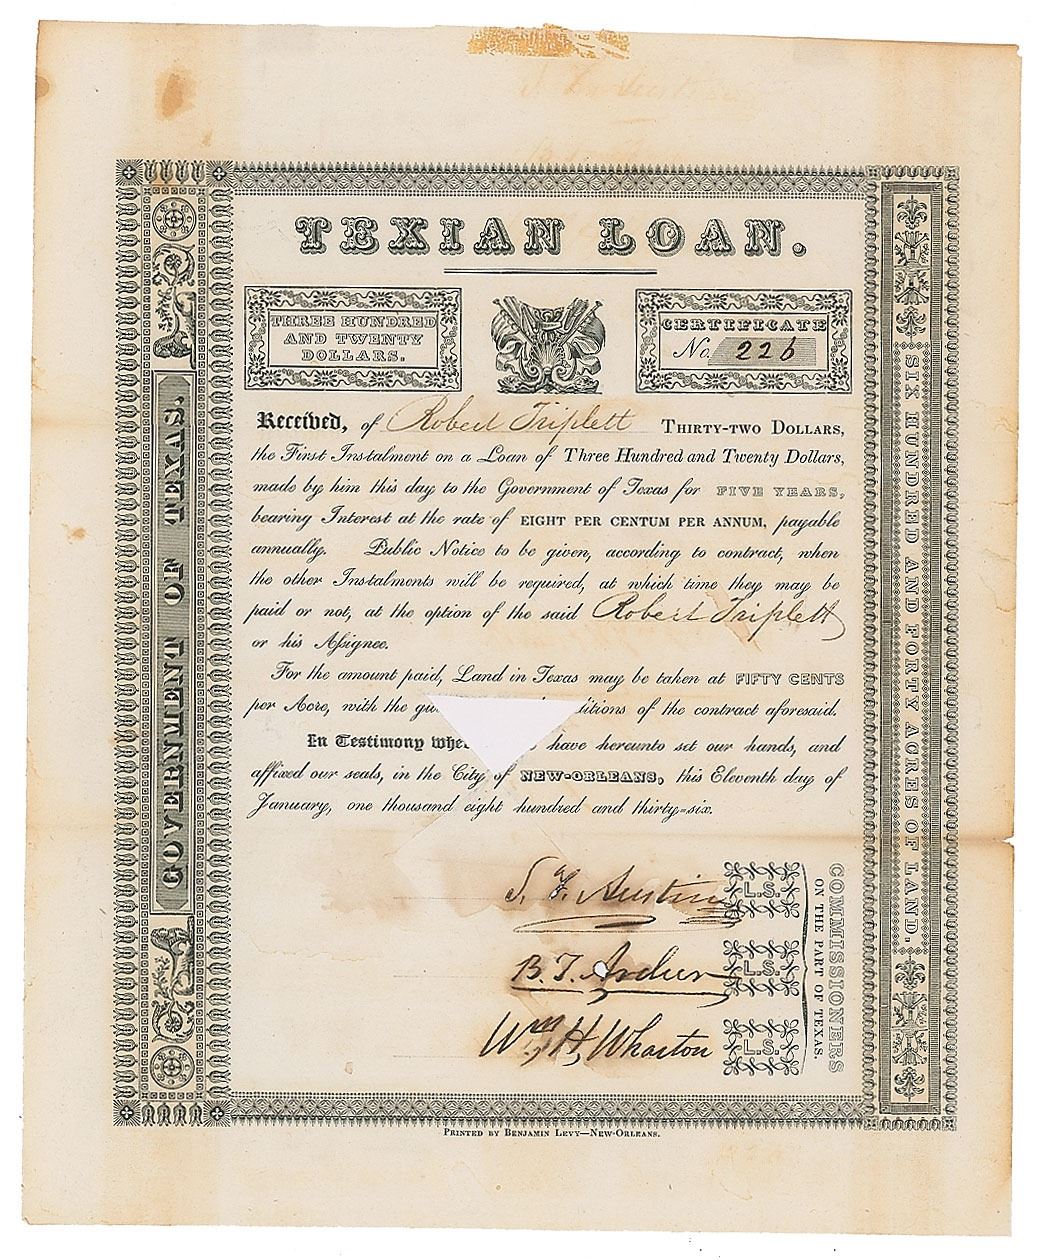 TEXIAN LOAN.
THREE HUNDRED
AND TWENTY
DOLLARS.
CERTIFICATE
No. 226
Received, of Robert Triplett THIRTY-TWO DOLLARS,
the First Instalment on a Loan of Three Hundred and Twenty Dollars,
made by him this day to the Government of Texas for FIVE YEARS,
bearing Interest at the rate of EIGHT PER CENTUM PER ANNUM, payable
annually. Public Notice to be given, according to contract, when
the other Instalments will be required, at which time they may be
paid or not, at the option of the said Robert Triplett
or his Assignee.
For the amount paid, Land in Texas may be taken at FIFTY CENTS
per Acre, with the of the contract aforesaid.
In Testimony have hereunto set our hands, and
affixed our seals, in the City of NEW-ORLEANS, this Eleventh day of
January, one thousand eight hundred and thirty-six.
S. F. Austin L.S.
B. T. Archer L.S.
Wm H. Wharton L.S.
COMMISSIONERS
ON THE PART OF TEXAS.
GOVERNMENT OF TEXAS.
SIX HUNDRED AND FORTY ACRES OF LAND.
PRINTED BY BENJAMIN LEVY—NEW-ORLEANS.